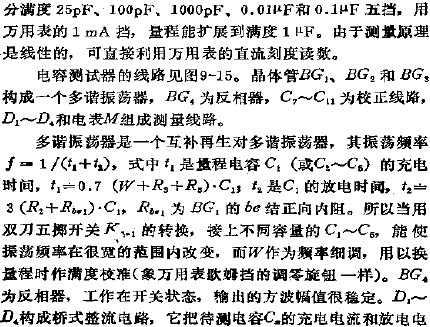 分满度 25pF、100pF、1000pF、0.01μF和0.1μF 五挡，用
万用表的 1 mA 挡，量程能扩展到满度 1 μF。由于测量原理
是线性的，可直接利用万用表的直流刻度读数。
电容测试器的线路见图9-15。晶体管BG₁、BG₂ 和 BG₃
构成一个多谐振荡器，BG₄ 为反相器，C₇～C₁₁ 为校正线路，
D₁～D₄和电表M组成测量线路。
多谐振荡器是一个互补再生对多谐振荡器，其振荡频率
f = 1/(t₁+t₂)，式中 t₁ 是量程电容 C₁（或C₂～C₅）的充电
时间，t₁=0.7 (W+R₃+R₅)·C₁；t₂ 是C₁ 的放电时间，t₂=
3 (R₂+Rbe₁)·C₁，Rbe₁ 为 BG₁ 的 be 结正向内阻。所以当用
双刀五掷开关 K₁₋₁ 的转换，接上不同容量的 C₁～C₅，能使
振荡频率在很宽的范围内改变，而W作为频率细调，用以换
量程时作满度校准（象万用表欧姆挡的调零旋钮一样）。BG₄
为反相器，工作在开关状态，输出的方波幅值很稳定。D₁～
D₄构成桥式整流电路，它把待测电容Cₓ的充电电流和放电电